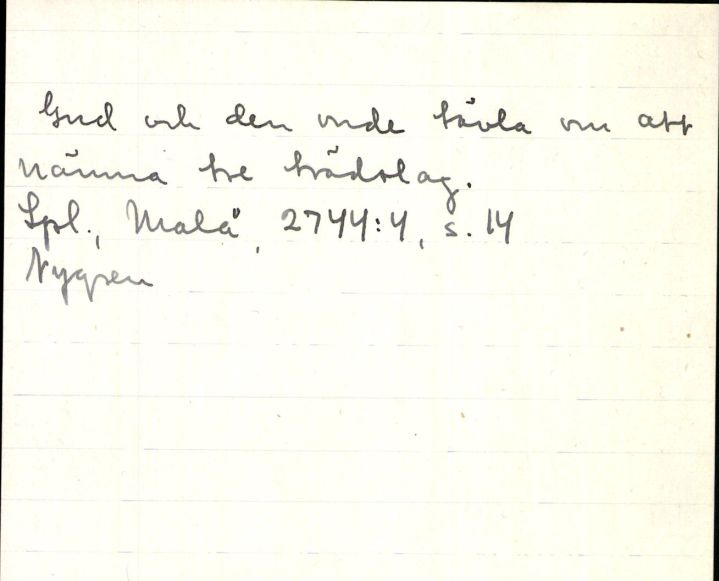 Gud och den onde tävla om att
nämna tre trädslag.
Lpl., Malå, 2744:4, s. 14
Nygren